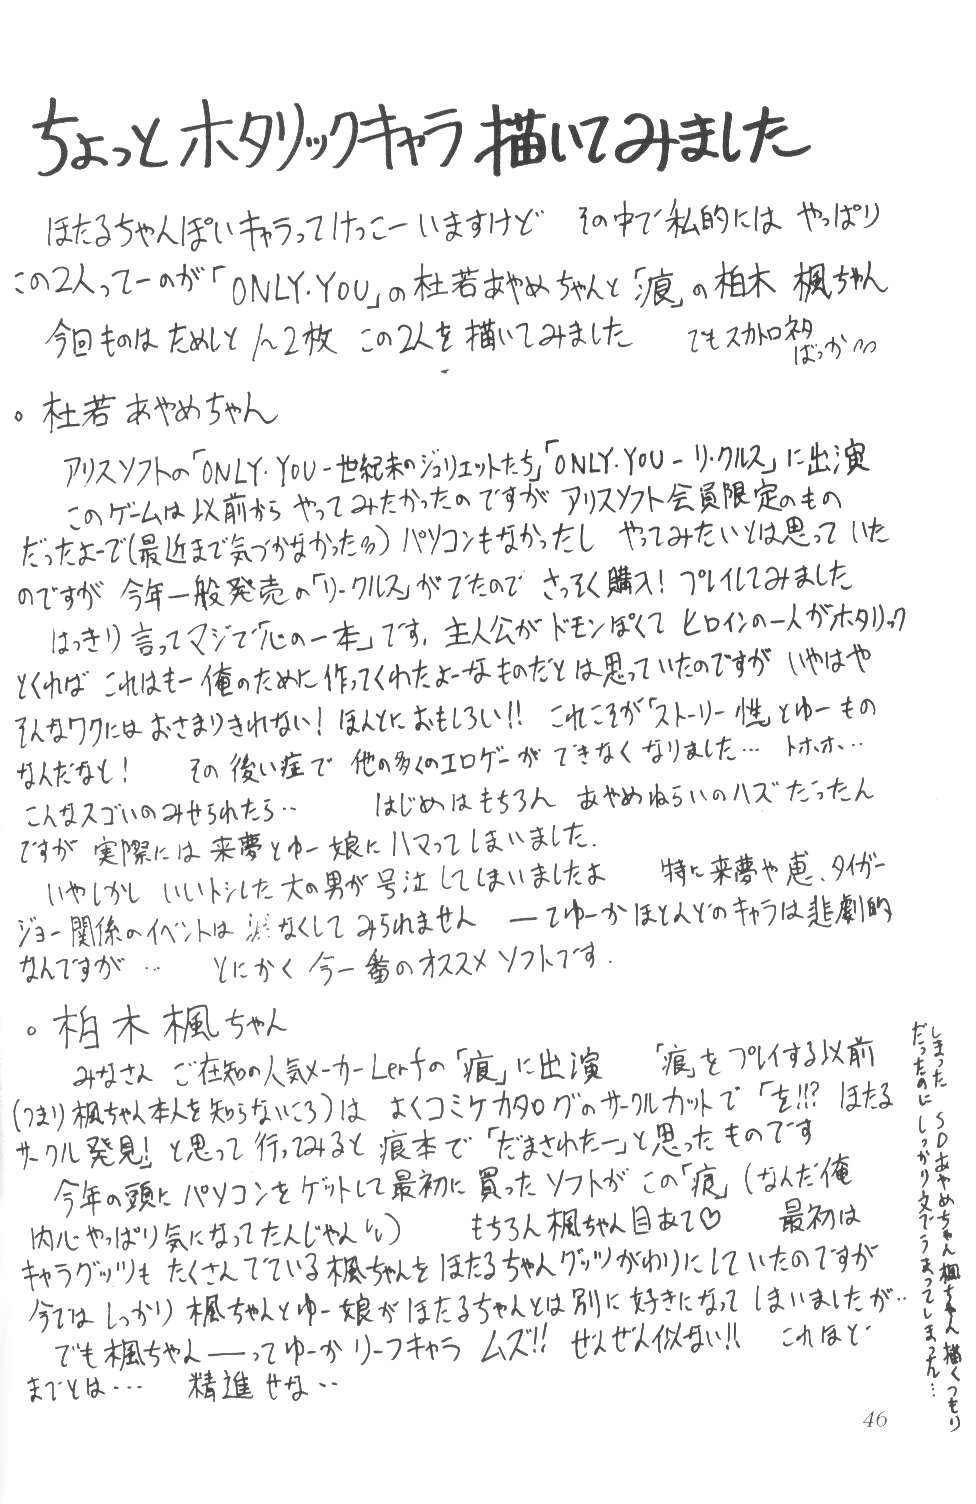 ちょっとホタリックキャラ描いてみました
ほたるちゃんぽいキャラってけっこーいますけど その中で私的には やっぱり
この2人ってーのが「ONLY.YOU」の杜若あやめちゃんと「痕」の柏木 楓ちゃん
今回ものはためしと 2枚 この2人を描いてみました でもスカトロネタ
ばっか
。杜若あやめちゃん
アリスソフトの「ONLY.YOU-世紀末のジュリエットたち」「ONLY.YOU-リ・クルス」に出演
このゲームは以前からやってみたかったのですがアリスソフト会員限定のもの
だったよーで(最近まで気づかなかった)パソコンもなかったし やってみたいとは思っていた
のですが 今年一般発売の「リ・クルス」がでたので さっそく購入!プレイしてみました
はっきり言ってマジで「心の一本」です.主人公がドモンぽくてヒロインの一人がホタリック
とくれば これはもー俺のために作ってくれたよーなものだとは思っていたのですが いやはや
そんなワクにはおさまりきれない!ほんとにおもしろい!! これこそが「ストーリー性」とゆーもの
なんだなと! その後い症で 他の多くのエロゲーができなくなりました… トホホ…
こんなスゴいのみせられたら‥ はじめはもちろん あやめねらいのハズだったん
ですが 実際には来夢とゆー娘にハマってしまいました.
いやしかし いいトシした大の男が号泣してしまいましたよ 特に来夢や恵、タイガー
ジョー関係のイベントは 涙なくしてみられません ―てゆーかほとんどのキャラは悲劇的
なんですが … とにかく今一番のオススメソフトです.
。柏木楓ちゃん
みなさん ご在知の人気メーカーLerfの「痕」に出演 「痕」をプレイする以前
(つまり楓ちゃん本人を知らないころ)は よくコミケカタログのサークルカットで「を!!?ほたる
サークル発見!」と思って行ってみると痕本で「だまされたー」と思ったものです
今年の頭にパソコンをゲットして最初に買ったソフトがこの「痕」(なんだ俺
内心やっぱり気になってたんじゃん) もちろん楓ちゃん目あて♡ 最初は
キャラグッツもたくさんでている楓ちゃんをほたるちゃんグッツがわりにしていたのですが
今ではしっかり楓ちゃんとゆー娘がほたるちゃんとは別に好きになってしまいましたが‥
でも楓ちゃん――ってゆーかリーフキャラ ムズ!! ぜんぜん似ない!! これほど
までとは… 精進せな‥
しまった SDあやめちゃん楓ちゃん描くつもり
だったのにしっかり文でうまってしまった…
46